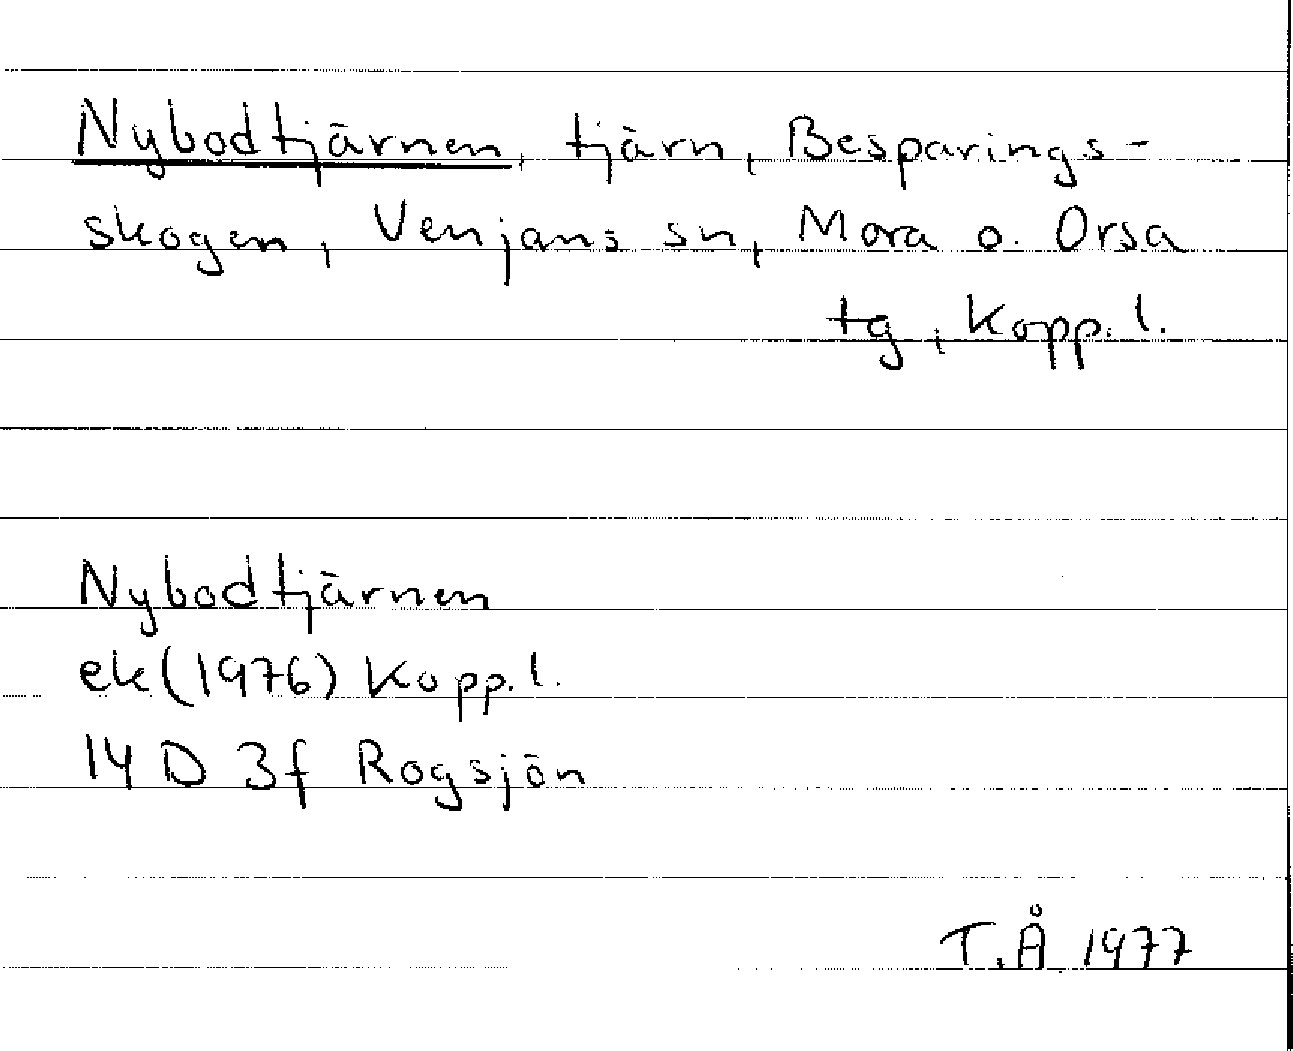 Nybodtjärnen, tjärn, Besparings-
skogen, Venjans sn, Mora o. Orsa
tg, Kopp. l.
Nybodtjärnen
ek (1976) Kopp. l.
14 D 3f Rogsjön
T.Å 1977